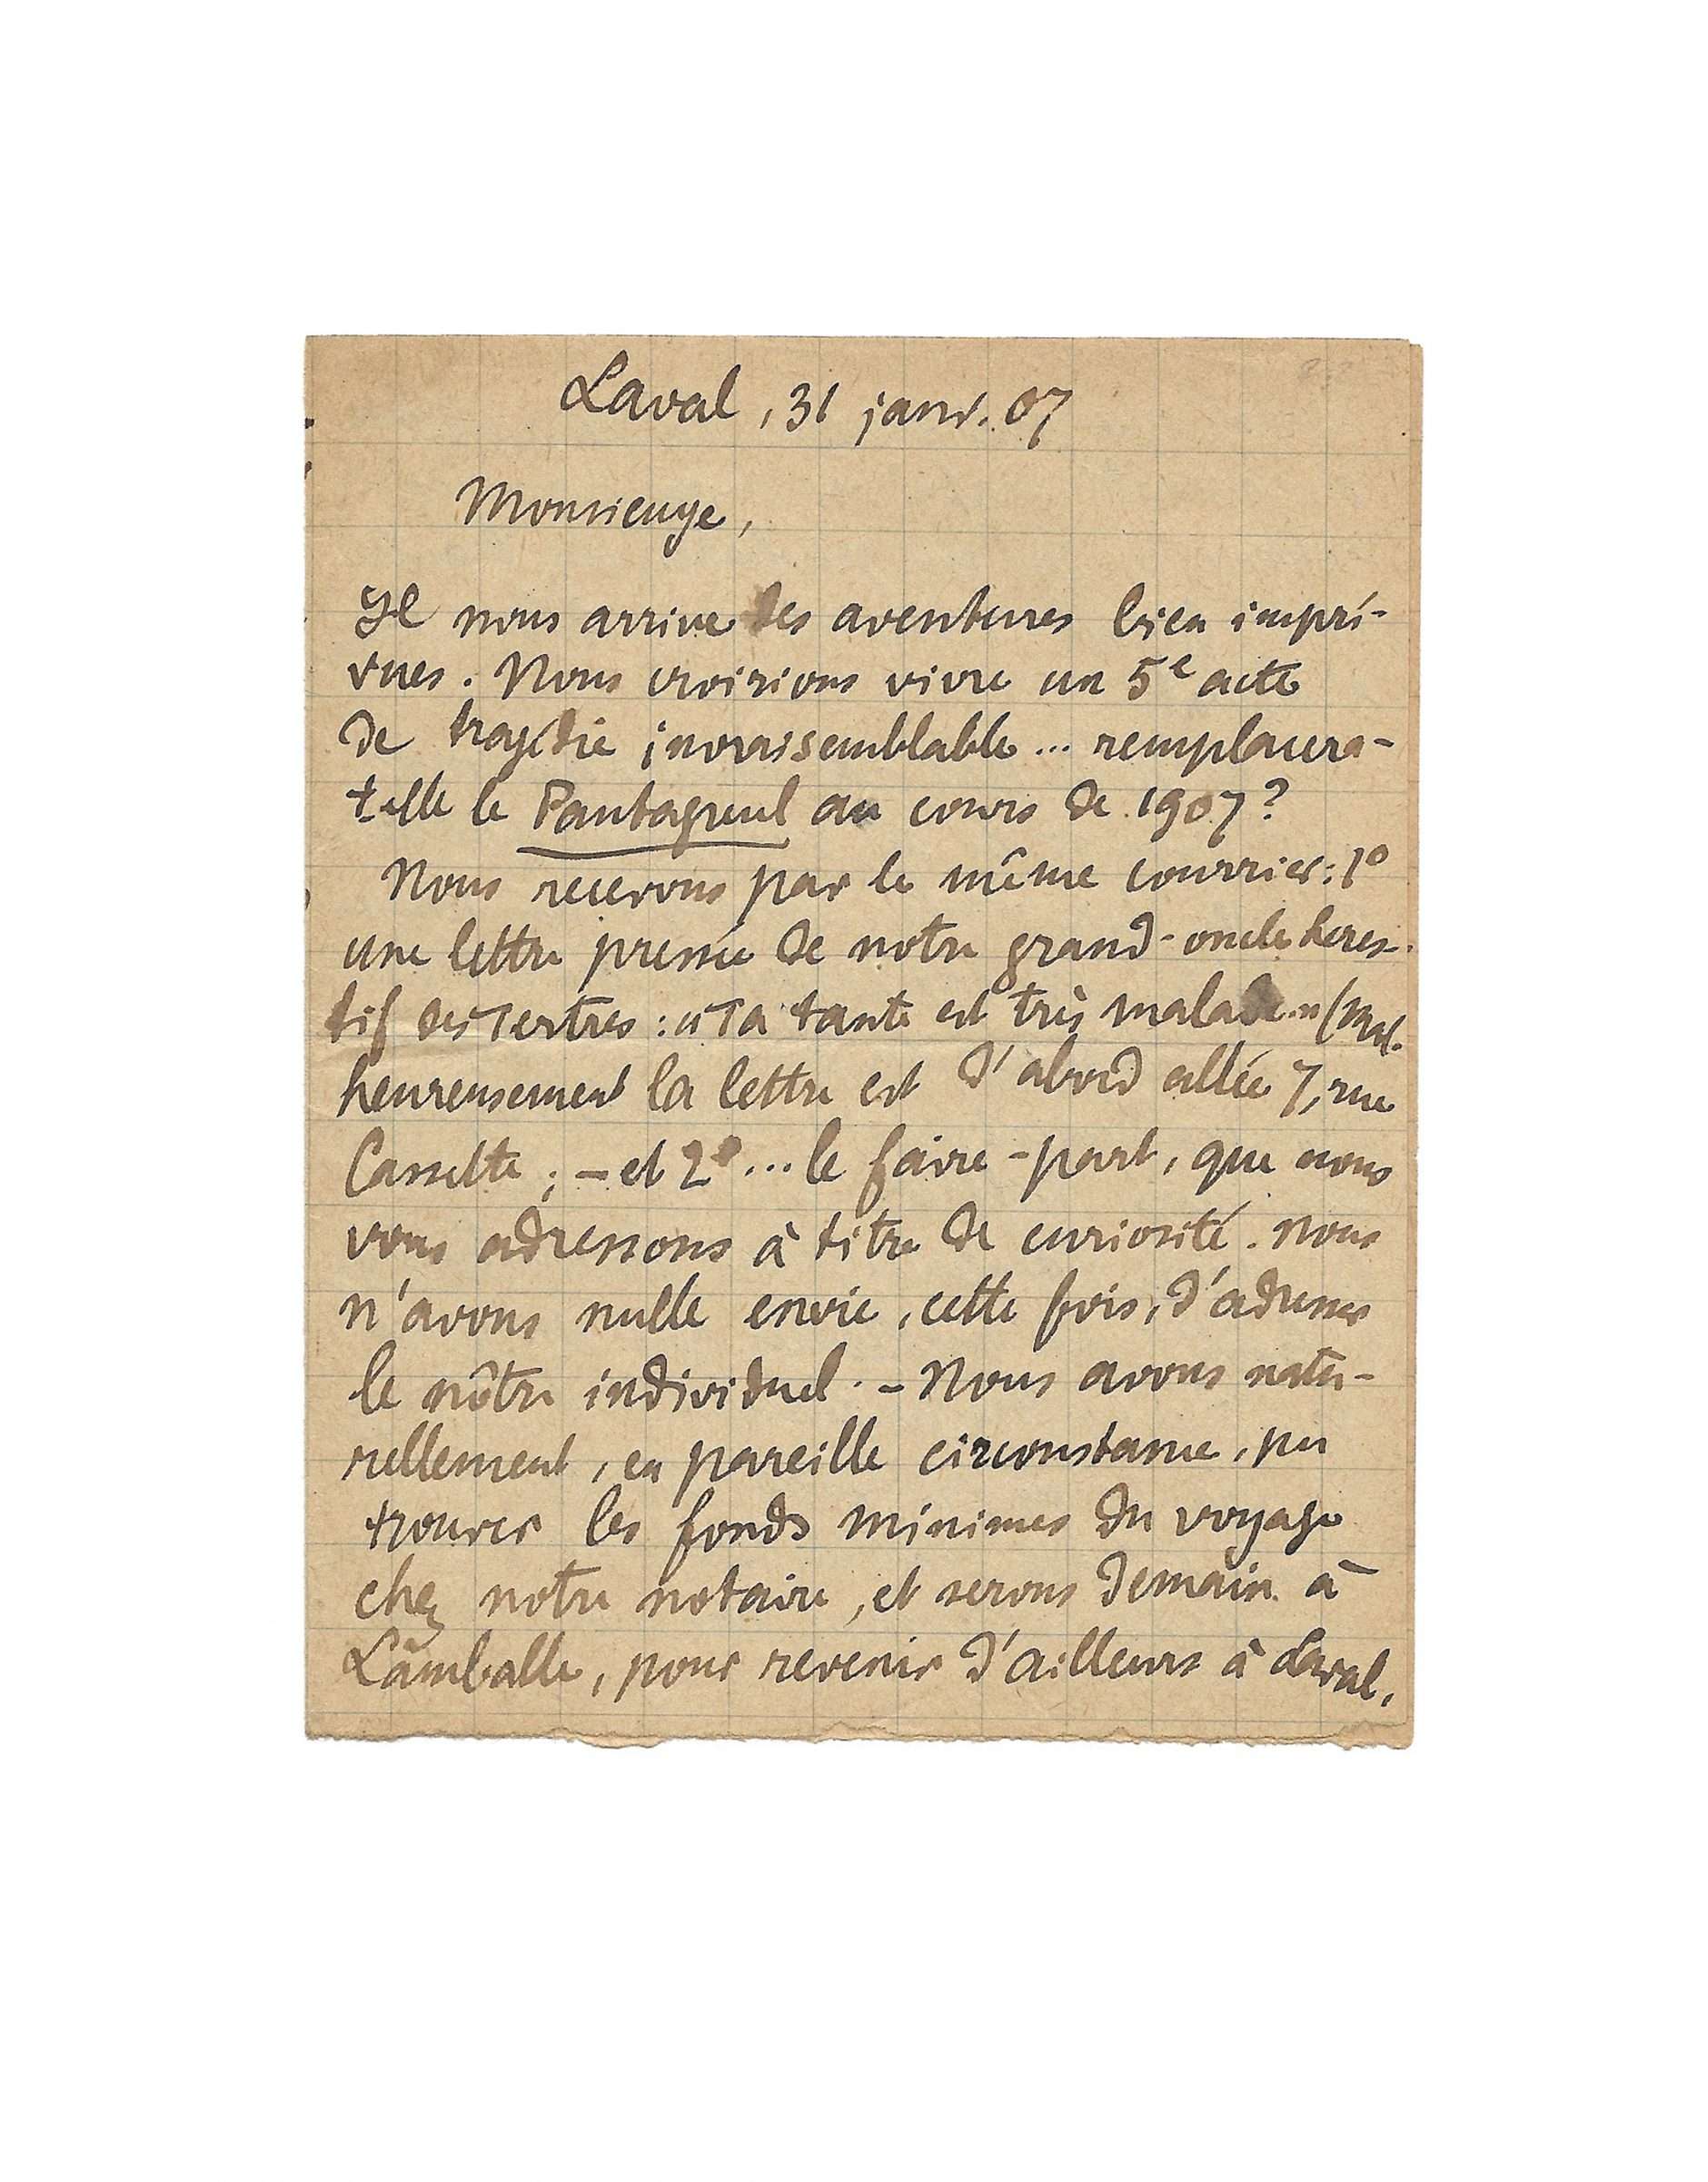 Laval, 31 janv. 07
Monsieuye,
Il nous arrive des aventures bien impré-
vues. Nous croirions vivre un 5e acte
de tragédie invraissemblable... remplacera-
t-elle le Pantagruel au cours de 1907?
Nous recevons par le même courrier: 1º
une lettre pressée de notre grand-oncle
tif des Tertres: "Ta tante est très malade." (Mal-
heureusement la lettre est d'abord allée 7, rue
Cassette; - et 2º ... le faire-part, que nous
vous adressons à titre de curiosité. Nous
n'avons nulle envie, cette fois, d'adresser
le nôtre individuel. - Nous avons natu-
rellement, en pareille circonstance, pu
trouver les fonds minimes du voyage
chez notre notaire, et serons demain à
Lamballe, pour revenir d'ailleurs à Laval,